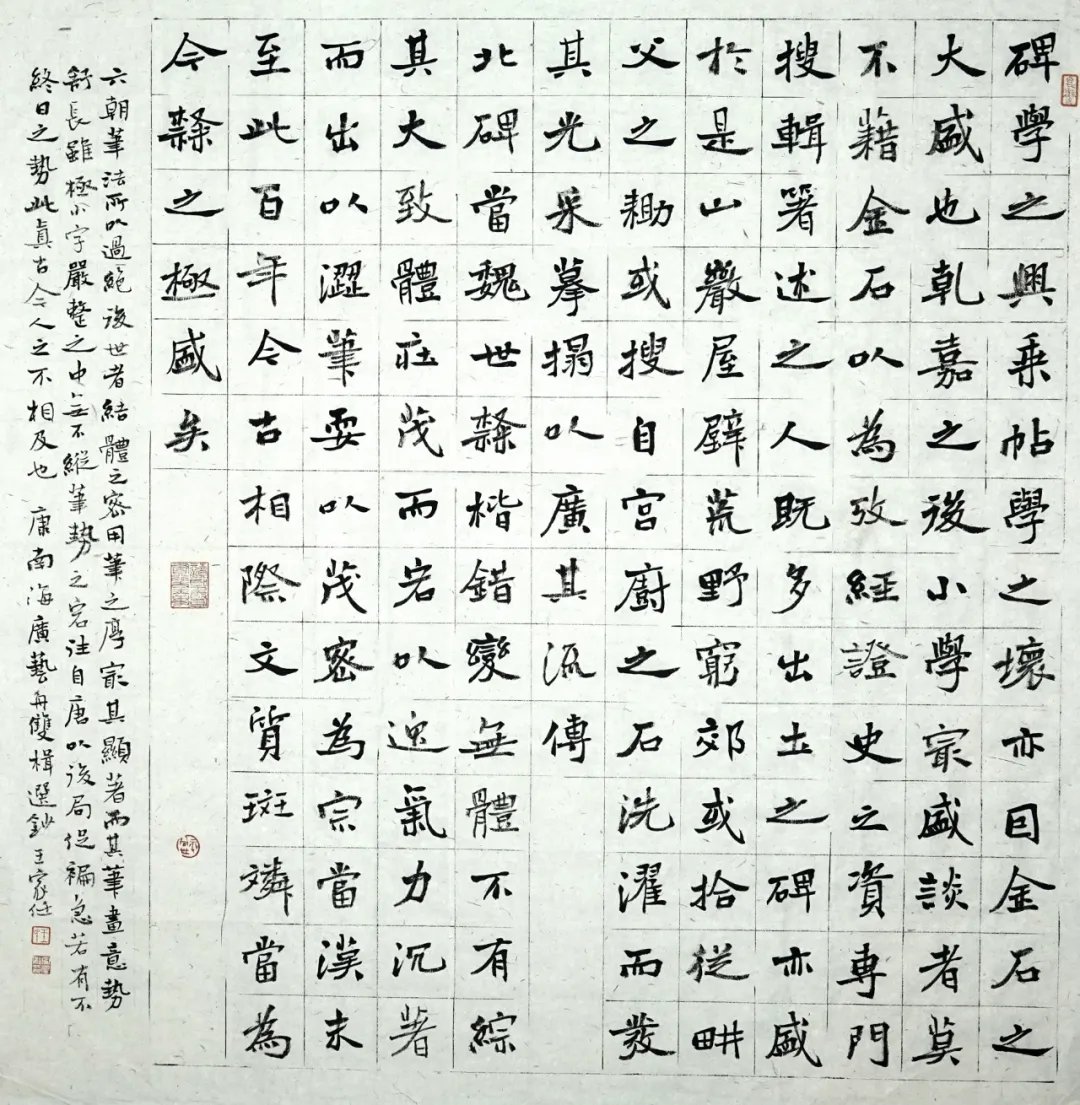 碑學之興乗帖學之壞亦因金石之
大盛也乾嘉之後小學冣盛談者莫
不藉金石以為攷經證史之資專門
搜輯箸述之人既多出土之碑亦盛
於是山巖屋壁荒野窮郊或拾從畊
父之耡或搜自宫廚之石洗濯而發
其光采摹搨以廣其流傳
北碑當魏世隸楷錯變無體不有綜
其大致體莊茂而宕以逸氣力沉著
而出以澀筆要以茂密為宗當漢末
至此百年今古相際文質斑璘當為
今隸之極盛矣
六朝筆法所以過絕後世者結體之密用筆之厚冣其顯著而其筆畫意勢
舒長雖極小字嚴整之中無不縱筆勢之宕往自唐以後局促褊急若有不
終日之勢此真古今人之不相及也 康南海廣藝舟雙楫選鈔 王家任